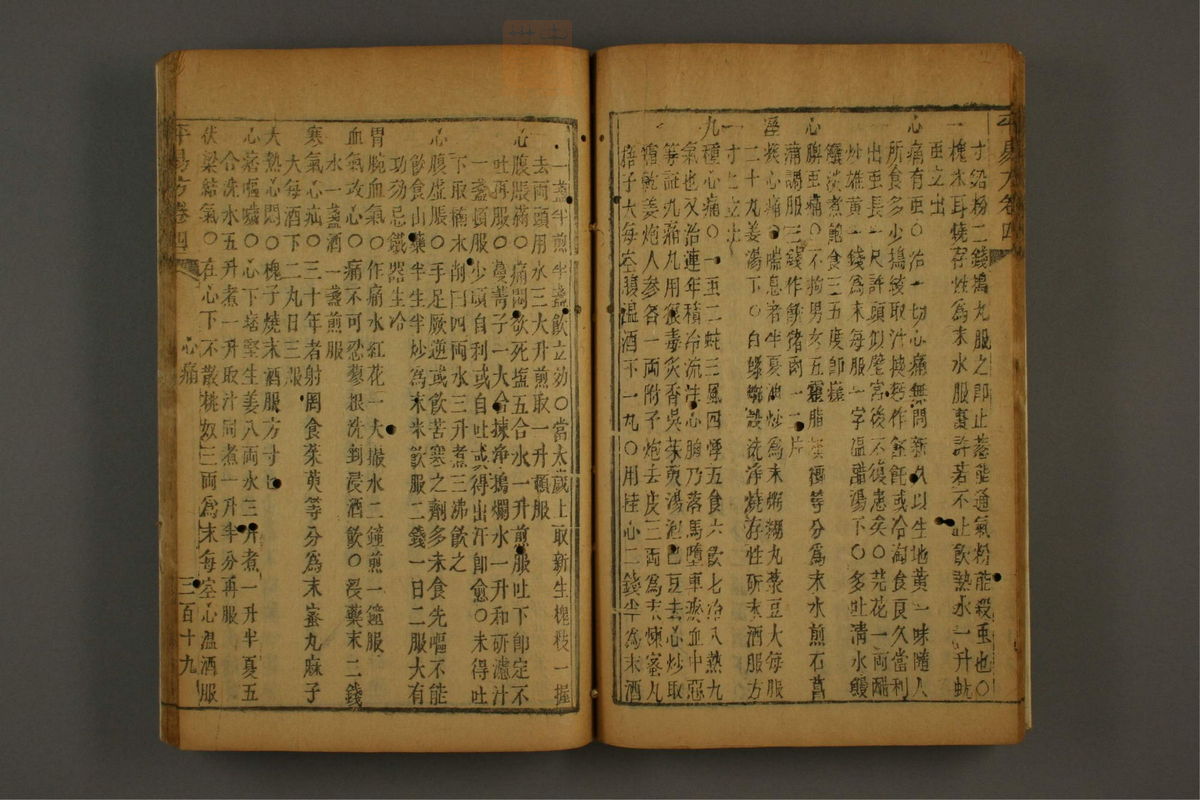 寸鉛粉二錢鷄丸服之即止葱能通氣粉能殺虫也〇
一槐木耳燒存性為末水服棗許若不止飲熱水一升蚘
虫立出
心痛有虫〇治一切心痛無問新久以生地黄一味隨人
所食多少搗絞取汁搜麪作飥或冷淘食良久當利
出虫長一尺許頭似壁宫後不復患矣〇芫花一兩醋
炒雄黄一錢為末每服一字温醋湯下〇多吐清水鰻
鱺淡煮飽食三五度即瘥
心脾虫痛〇不拘男女五靈脂檳榔等分為末水煎石菖
蒲調服三錢作餘猪肉一二片
痰心痛喘息者半夏油炒為末粥糊丸菉豆大每服
二十九姜湯下〇白螺螄殼洗淨燒存性研末酒服方
寸匕立止
九種心痛〇一虫二蛀三風四悸五食六飲七冷八熱九
氣也又治連年積冷流注心胸乃落馬墮車瘀血中惡
等証九痛九用狼毒炙香吳茱萸湯泡巴豆去心炒取
霜乾姜炮人参各一兩附子炮去皮三兩為末煉蜜丸
梧子大每空腹温酒下一九〇用桂心二錢半為末酒
一盞半煎半盞飲立効〇當太歲上取新生槐枝一握
去兩頭用水三大升煎取一升頓服
心腹脹痛〇痛悶欲死塩五合水一升煎服吐下即定不
吐再服〇蔓菁子一大合揀淨搗爛水一升和研濾汁
一盞頓服少頃自利或自吐或得出汗即愈〇未得吐
下取楠木削四兩水三升煮三沸飲之
心腹虚脹〇手足厥逆或飲苦寒之劑多未食先嘔不能
飲食山藥半生半炒為末米飲服二錢一日二服大有
功効忌鐵器生冷
胃脘血氣〇作痛水紅花一大撮水二鐘煎一鐘服
血氣攻心〇痛不可忍蓼根洗剉浸酒飲〇没藥末二錢
水一盞酒一盞煎服
寒氣心疝〇三十年者射罔食茱萸等分為末蜜丸麻子
大每酒下二九日三服
大熱心悶〇槐子燒末酒服方寸匕
心痞嘔噦〇心下痞堅生姜八兩水三升煮一升半夏五
合洗水五升煮一升取汁同煮一升半分再服
伏梁結氣〇在心下不散桃奴三兩為末每空心温酒服
平易方卷四 心痛 三百十九